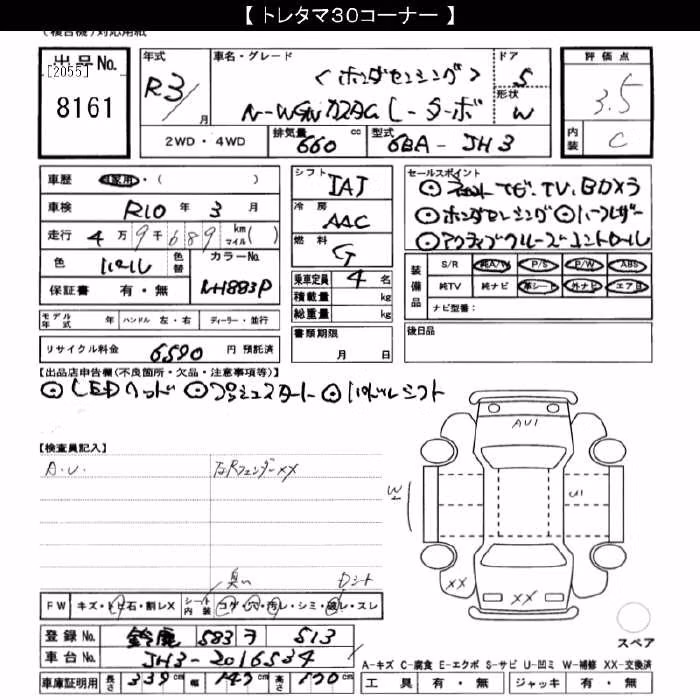 【 トレタマ30コーナー 】
(複合機)対応用紙
出品No.
[2055]
8161
年式
R3/
月
車名・グレード
〈ホンダセンシング〉
N-WGNカスタム L-ターボ
ドア
5
形状
W
評価点
3.5
内装
C
2WD・4WD
排気量 660 cc
型式 6BA-JH3
車歴 自家用・( )
車検 R10 年 3 月
走行 4万9千689 km マイル( )
色 パール
色替
カラーNo.
NH883P
保証書 有・無
シフト
IAT
冷房
AAC
燃料
G
乗車定員 4 名
積載量 kg
総重量 kg
セールスポイント
TV.
ホンダセンシング
アクティブクルーズコントロール
装備品
S/R 純A/W P/S P/W ABS
純TV 純ナビ 革シート 外ナビ エアB
ナビ型番:
モデル年式 年 ハンドル 左・右 ディーラー・並行
リサイクル料金 6590 円 預託済
書類期限
月 日
後日品
【出品店申告欄(不良箇所・欠品・注意事項等)】
LEDヘッド プッシュスタート パドルシフト
【検査員記入】
A.U. 左Rフェンダーxx
AU1
W1
U1
XX
XX
臭い Dシート
FW キズ・トビ石・割レX シート内装 コゲ・穴・汚レ・シミ・破レ・スレ
登録No. 鈴鹿 583 ヲ 513
車台No. JH3-2016534
車庫証明用 長さ 339 cm 幅 147 cm 高さ 170 cm
スペア
A-キズ C-腐食 E-エクボ S-サビ U-凹ミ W-補修 XX-交換済
工具 有・無 ジャッキ 有・無